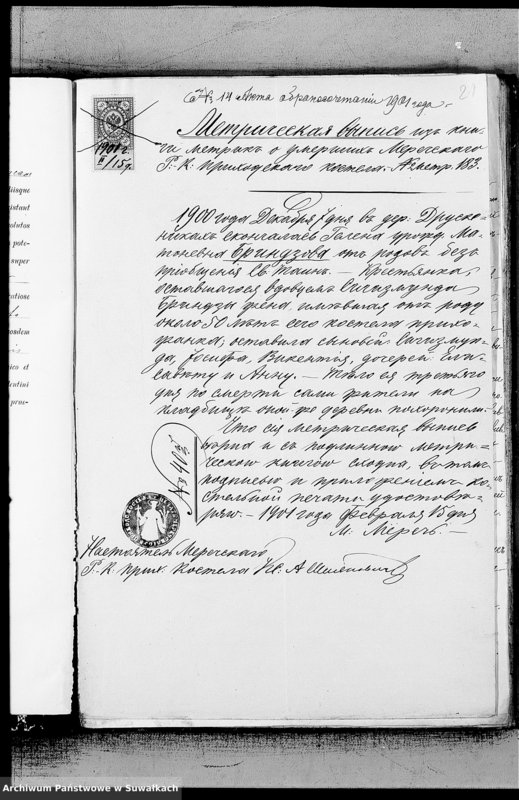 1901 года
21
1901 г.
II/15 д.
Метрическая выпись изъ кни-
ги метрикъ о умершихъ Меречскаго
Р.-К. приходскаго костела. Актъ метр. 183.
1900 года Декабря 7 дня въ дер. Друско-
никахъ скончалась Гелена урожд.
Бриндзова отъ родовъ безъ
пріобщенія Св. Таинъ. — Крестьянка,
оставшагося вдовцемъ Сигизмунда
Бриндзы жена, имѣвшая отъ роду
около 50 лѣтъ сего костела прихо-
жанка, оставила сыновей Сигизмун-
да, Іосифа, Викентія, дочерей Ели-
савету и Анну. — Тѣло ея третьяго
дня по смерти сами жители на
кладбищѣ оной-же деревни похоронили.
Что сія метрическая выпись
вѣрна и съ подлинною метри-
ческою книгою сходна, въ томъ
подписью и приложеніемъ ко-
стельной печати удостовѣ-
ряю. — 1901 года Февраля 15 дня
М. Меречь. —
№ 403
Настоятель Меречскаго
Р.-К. прих. костела Кс. А.
tiisque
ratiose
super
eosdem
Archiwum Państwowe w Suwałkach